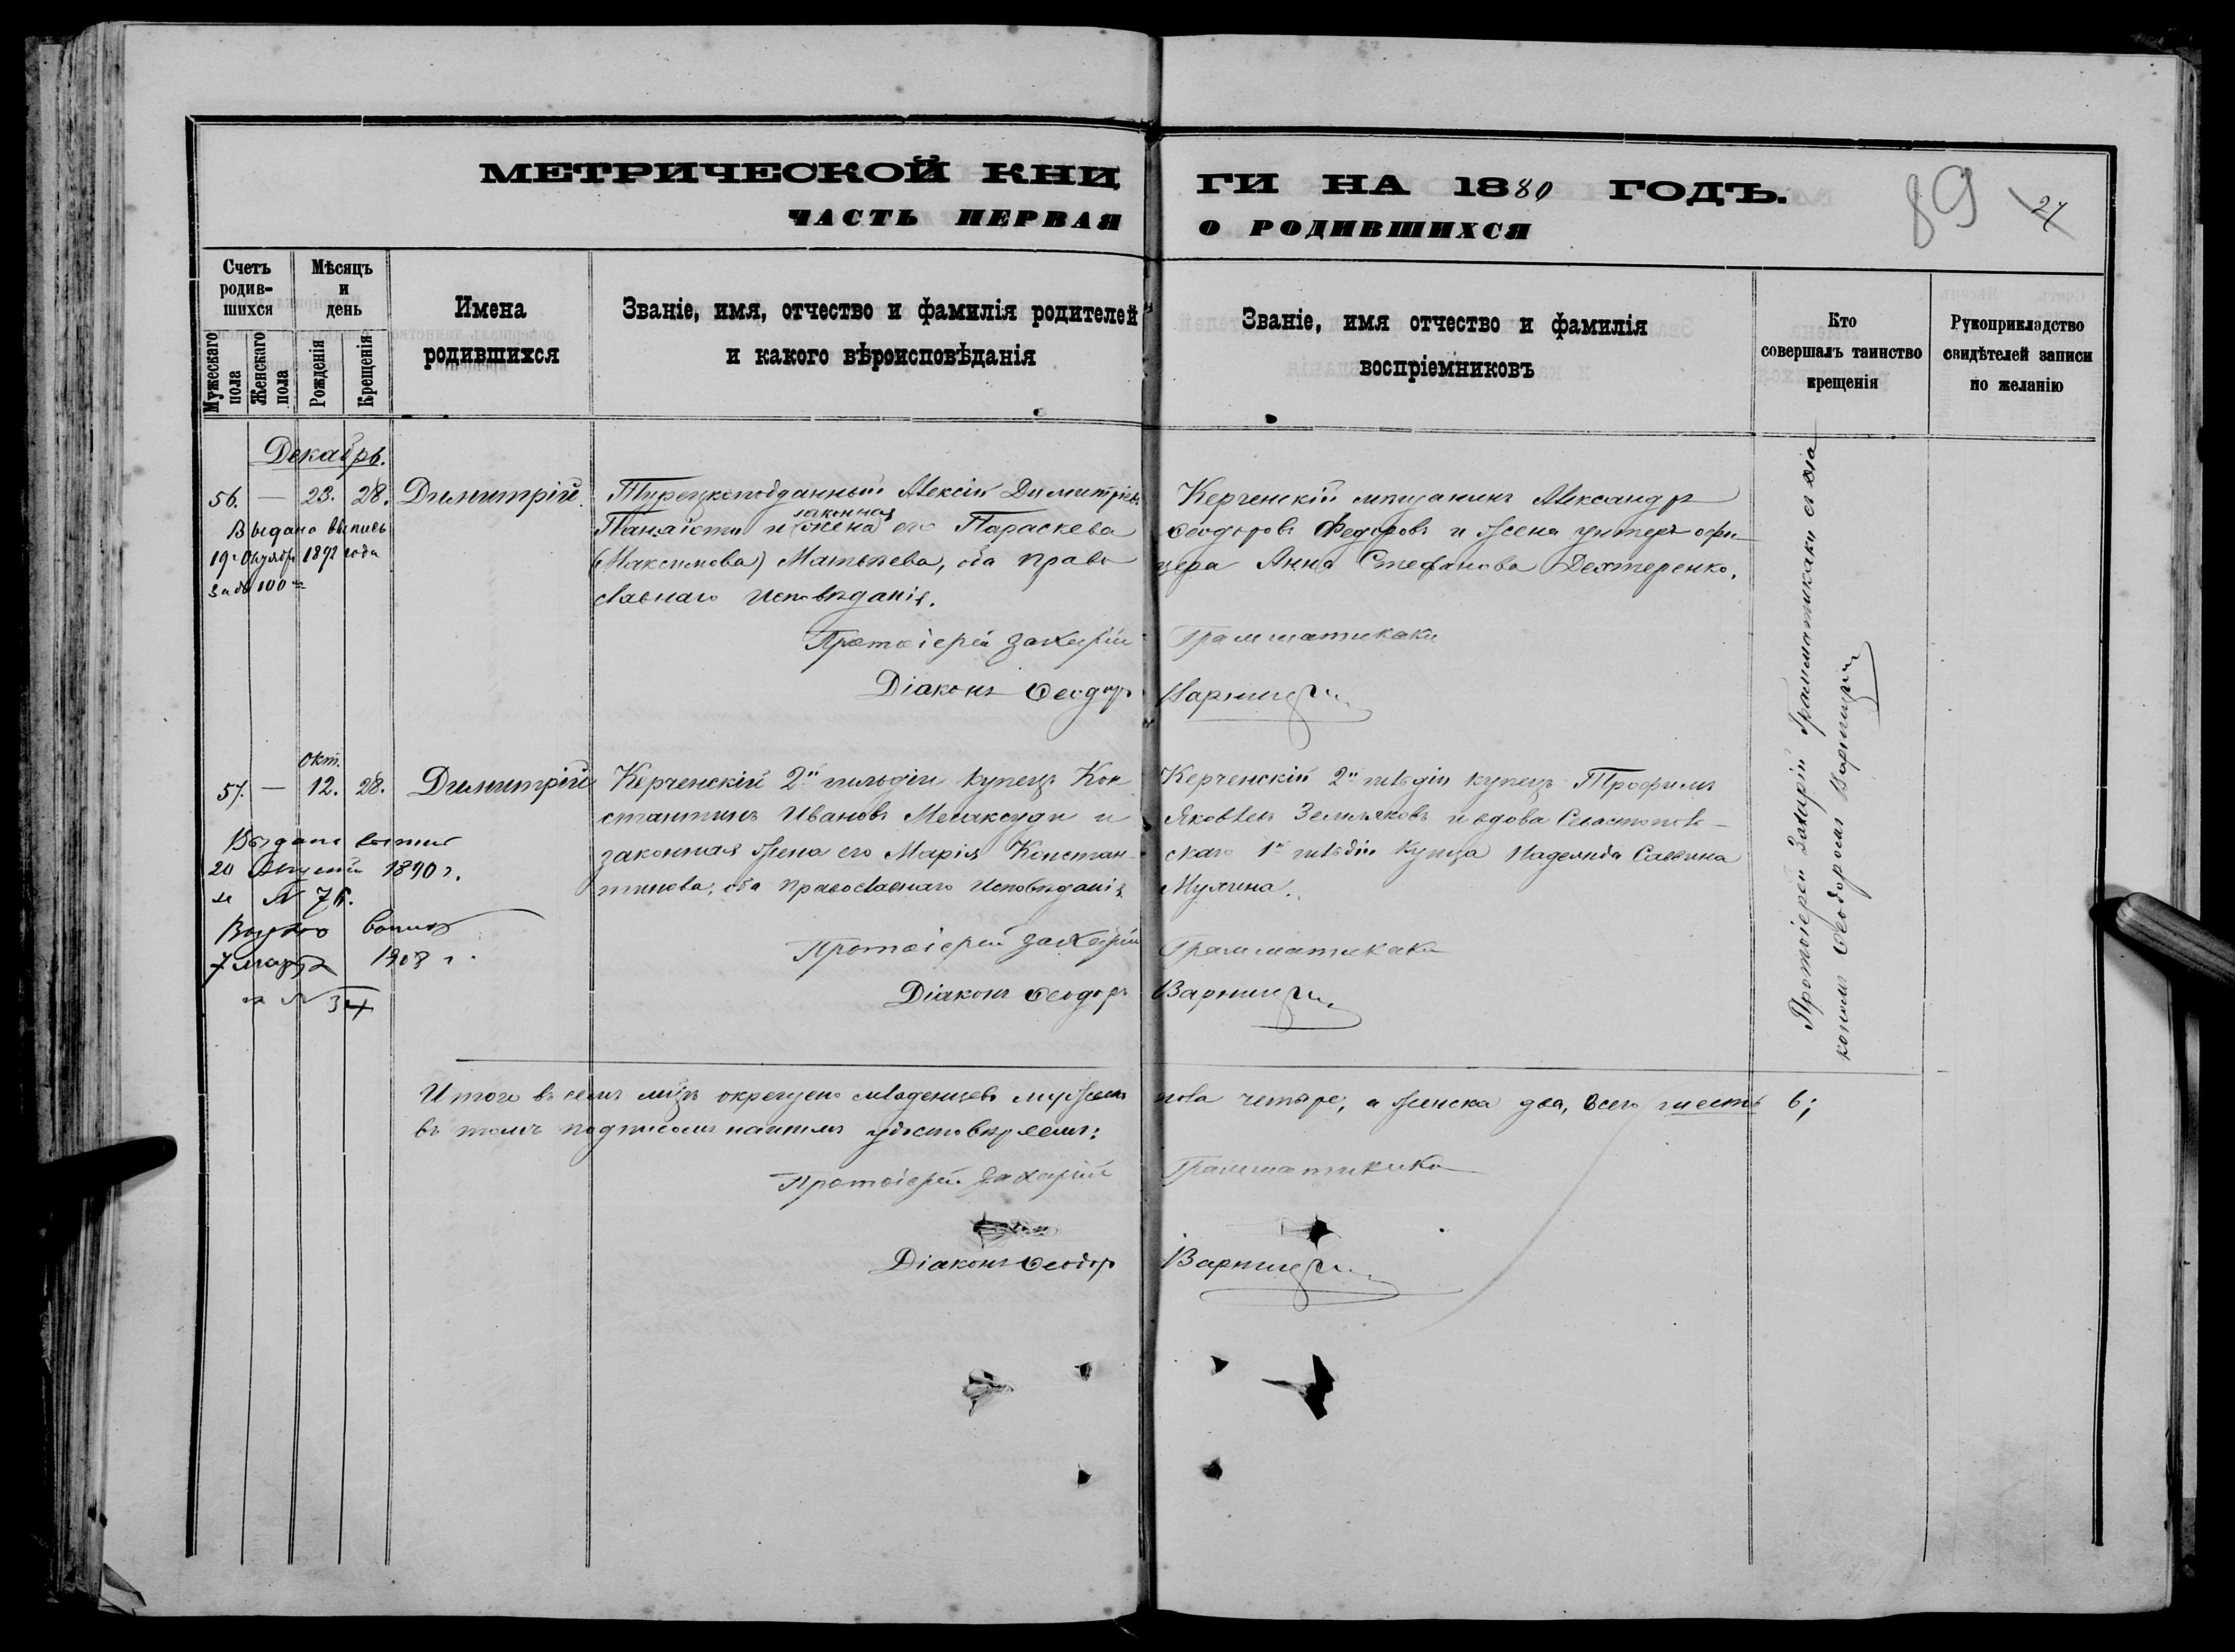 МЕТРИЧЕСКОЙ КНИ
ГИ НА 1880 ГОДЪ.
ЧАСТЬ ПЕРВАЯ
О РОДИВШИХСЯ
89
27
Счетъ родив-шихся
Мужескаго пола
Женскаго пола
Мѣсяцъ и день
Рожденія
Крещенія
Имена
родившихся
Званіе, имя, отчество и фамилія родителей
и какого вѣроисповѣданія
Званіе, имя отчество и фамилія
воспріемниковъ
Кто
совершалъ таинство
крещенія
Рукоприкладство
свидѣтелей записи
по желанію
Декабрь.
56. — 23. 28. Димитрій.
Выдана выпись
19 Октября 1892 года
за № 100
Турецкоподданный Алексій Димитріевъ
Панаіоти и законная жена его Параскева
(Максимова) Матвѣева, оба право
славнаго исповѣданія.
Керченскій мѣщанинъ Александръ
Ѳеодоровъ Федоровъ и жена унтеръ офи
цера Анна Стефанова Дехтеренко.
Протоіерей Захарій Грамматикаки
Діаконъ Ѳеодоръ Варницкій
окт.
57. — 12. 28. Димитрій
Выдана выпись
20 1890 г.
за № 76.
Выдана выпись
7 марта 1908 г.
за № 34
Керченскій 2й гильдіи купецъ Кон
стантинъ Ивановъ Месаксуди и
законная жена его Марія Констан-
тинова, оба православнаго исповѣданія
Керченскій 2й гильдіи купецъ Трофимъ
Яковлевъ Земляковъ и вдова Севастополь-
скаго 1й гильдіи купца Надежда Саввина
Мухина.
Протоіерей Захарій Грамматикаки
Діаконъ Ѳеодоръ Варницкій
Протоіерей Захарій Грамматикаки съ діа
кономъ Ѳеодоромъ Варницкимъ
Итого въ семъ мѣсяцѣ окрещено младенцевъ мужеска пола четыре, а женска два, всего шесть 6;
въ томъ подписомъ нашимъ удостовѣряемъ:
Протоіерей Захарій Грамматикаки
Діаконъ Ѳеодоръ Варницкій